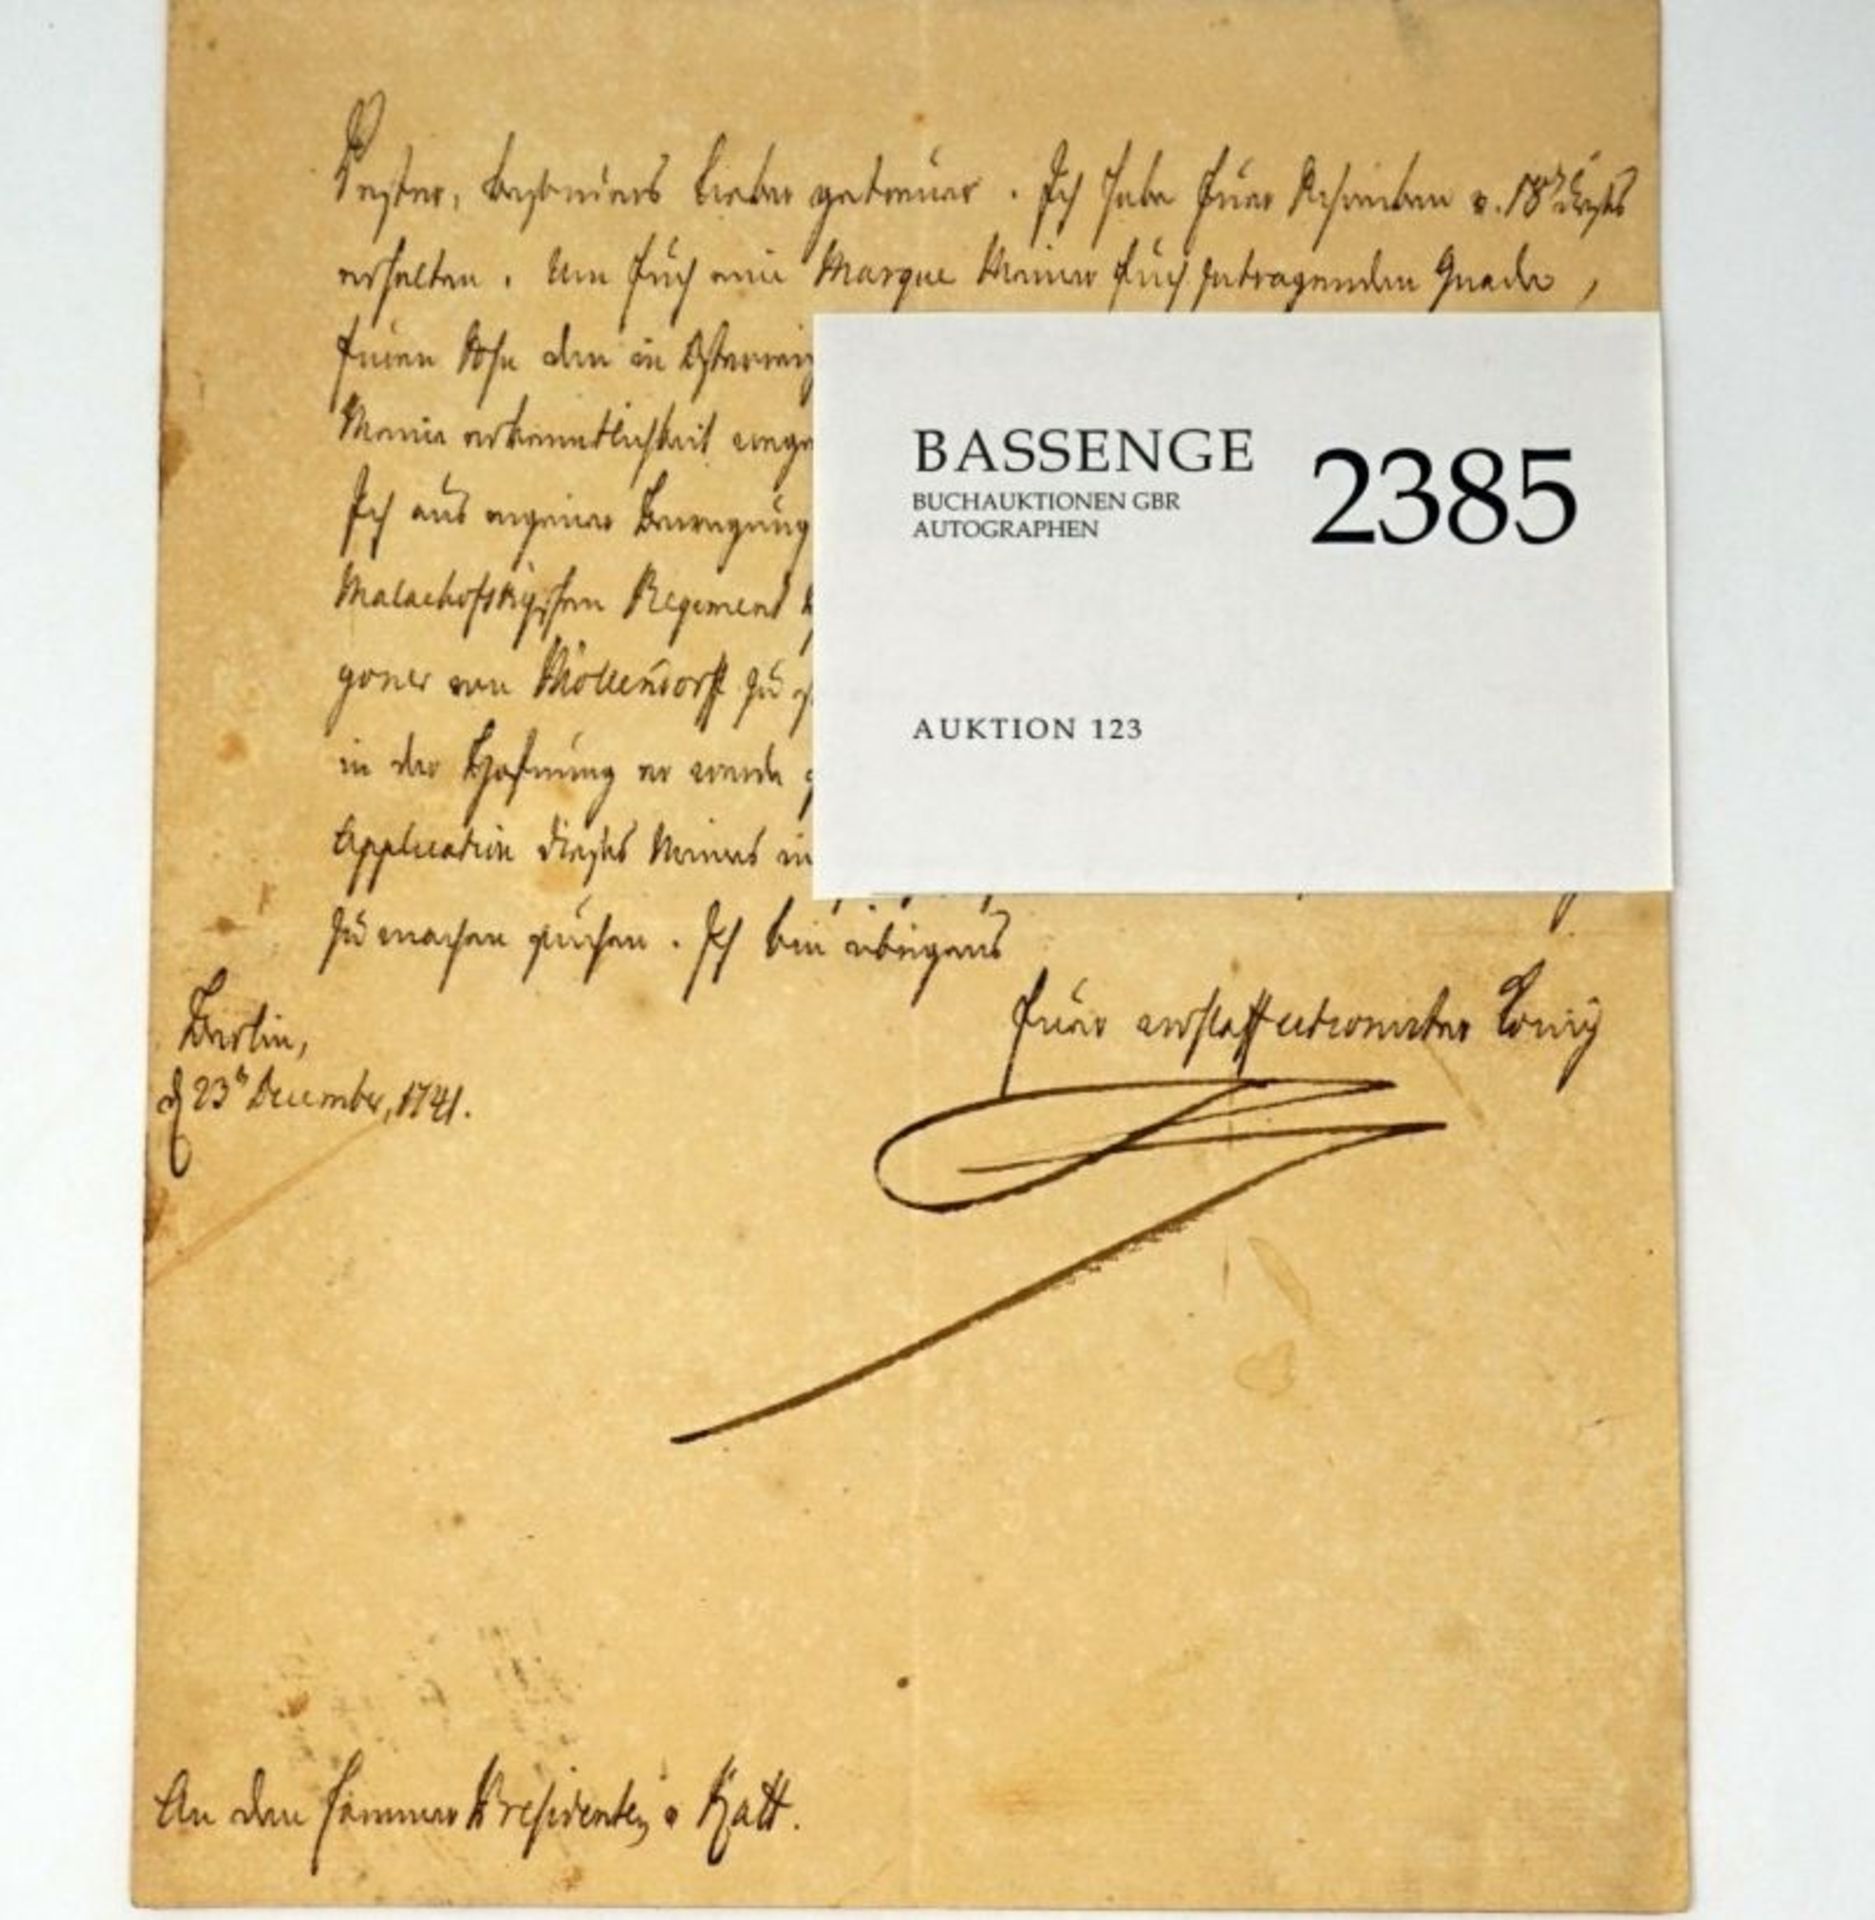 Vester, besonders Lieber getreuer. Ich habe Euer Schreiben v. 18t dieses
erhalten. Um Euch eine Marque Meiner Euch zutragenden Gnade,
Euren Sohn den in
Meine erkenntlichkeit
Ich aus eigener Bewegung
Malachofskyschen Regiment
goner von Möllendorff zu
in der Hofnung er werde
Application dieses Meines
zu machen suchen. Ich bin übrigens
Euer wohlaffectionirter König
Berlin,
d 23t December, 1741.
An den Cammer Presidenten v Katt.
BASSENGE
BUCHAUKTIONEN GBR
AUTOGRAPHEN
2385
AUKTION 123